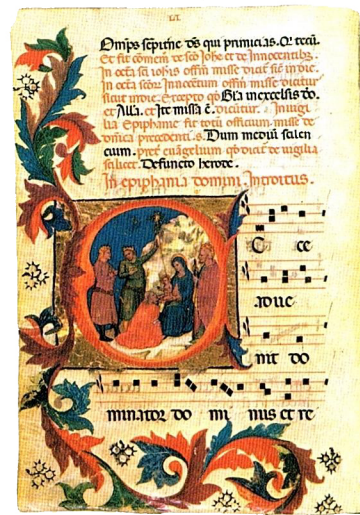 LI.
Omps sepitne ds qui primicias. Q' tecū.
Et fit cōmem de scō Johe et de Innocentibz.
In octa sci iohis offm misse dicit sic in die.
In octa scōr Innocētum offm misse dicitur
sicut in die. Excepto qd Gla in excelsis do.
et Alla. et Ite missa ē. dicitur. In uigi
lia Epiphanie fit totū officium misse de
dnica precedenti. s. Dum mediū silen
cium. pret euāgelium qd dicit de uigilia
scilicet. Defuncto herode.
In epiphania domini. Introitus.
C ce
adue
nit do
minator do mi nus et re